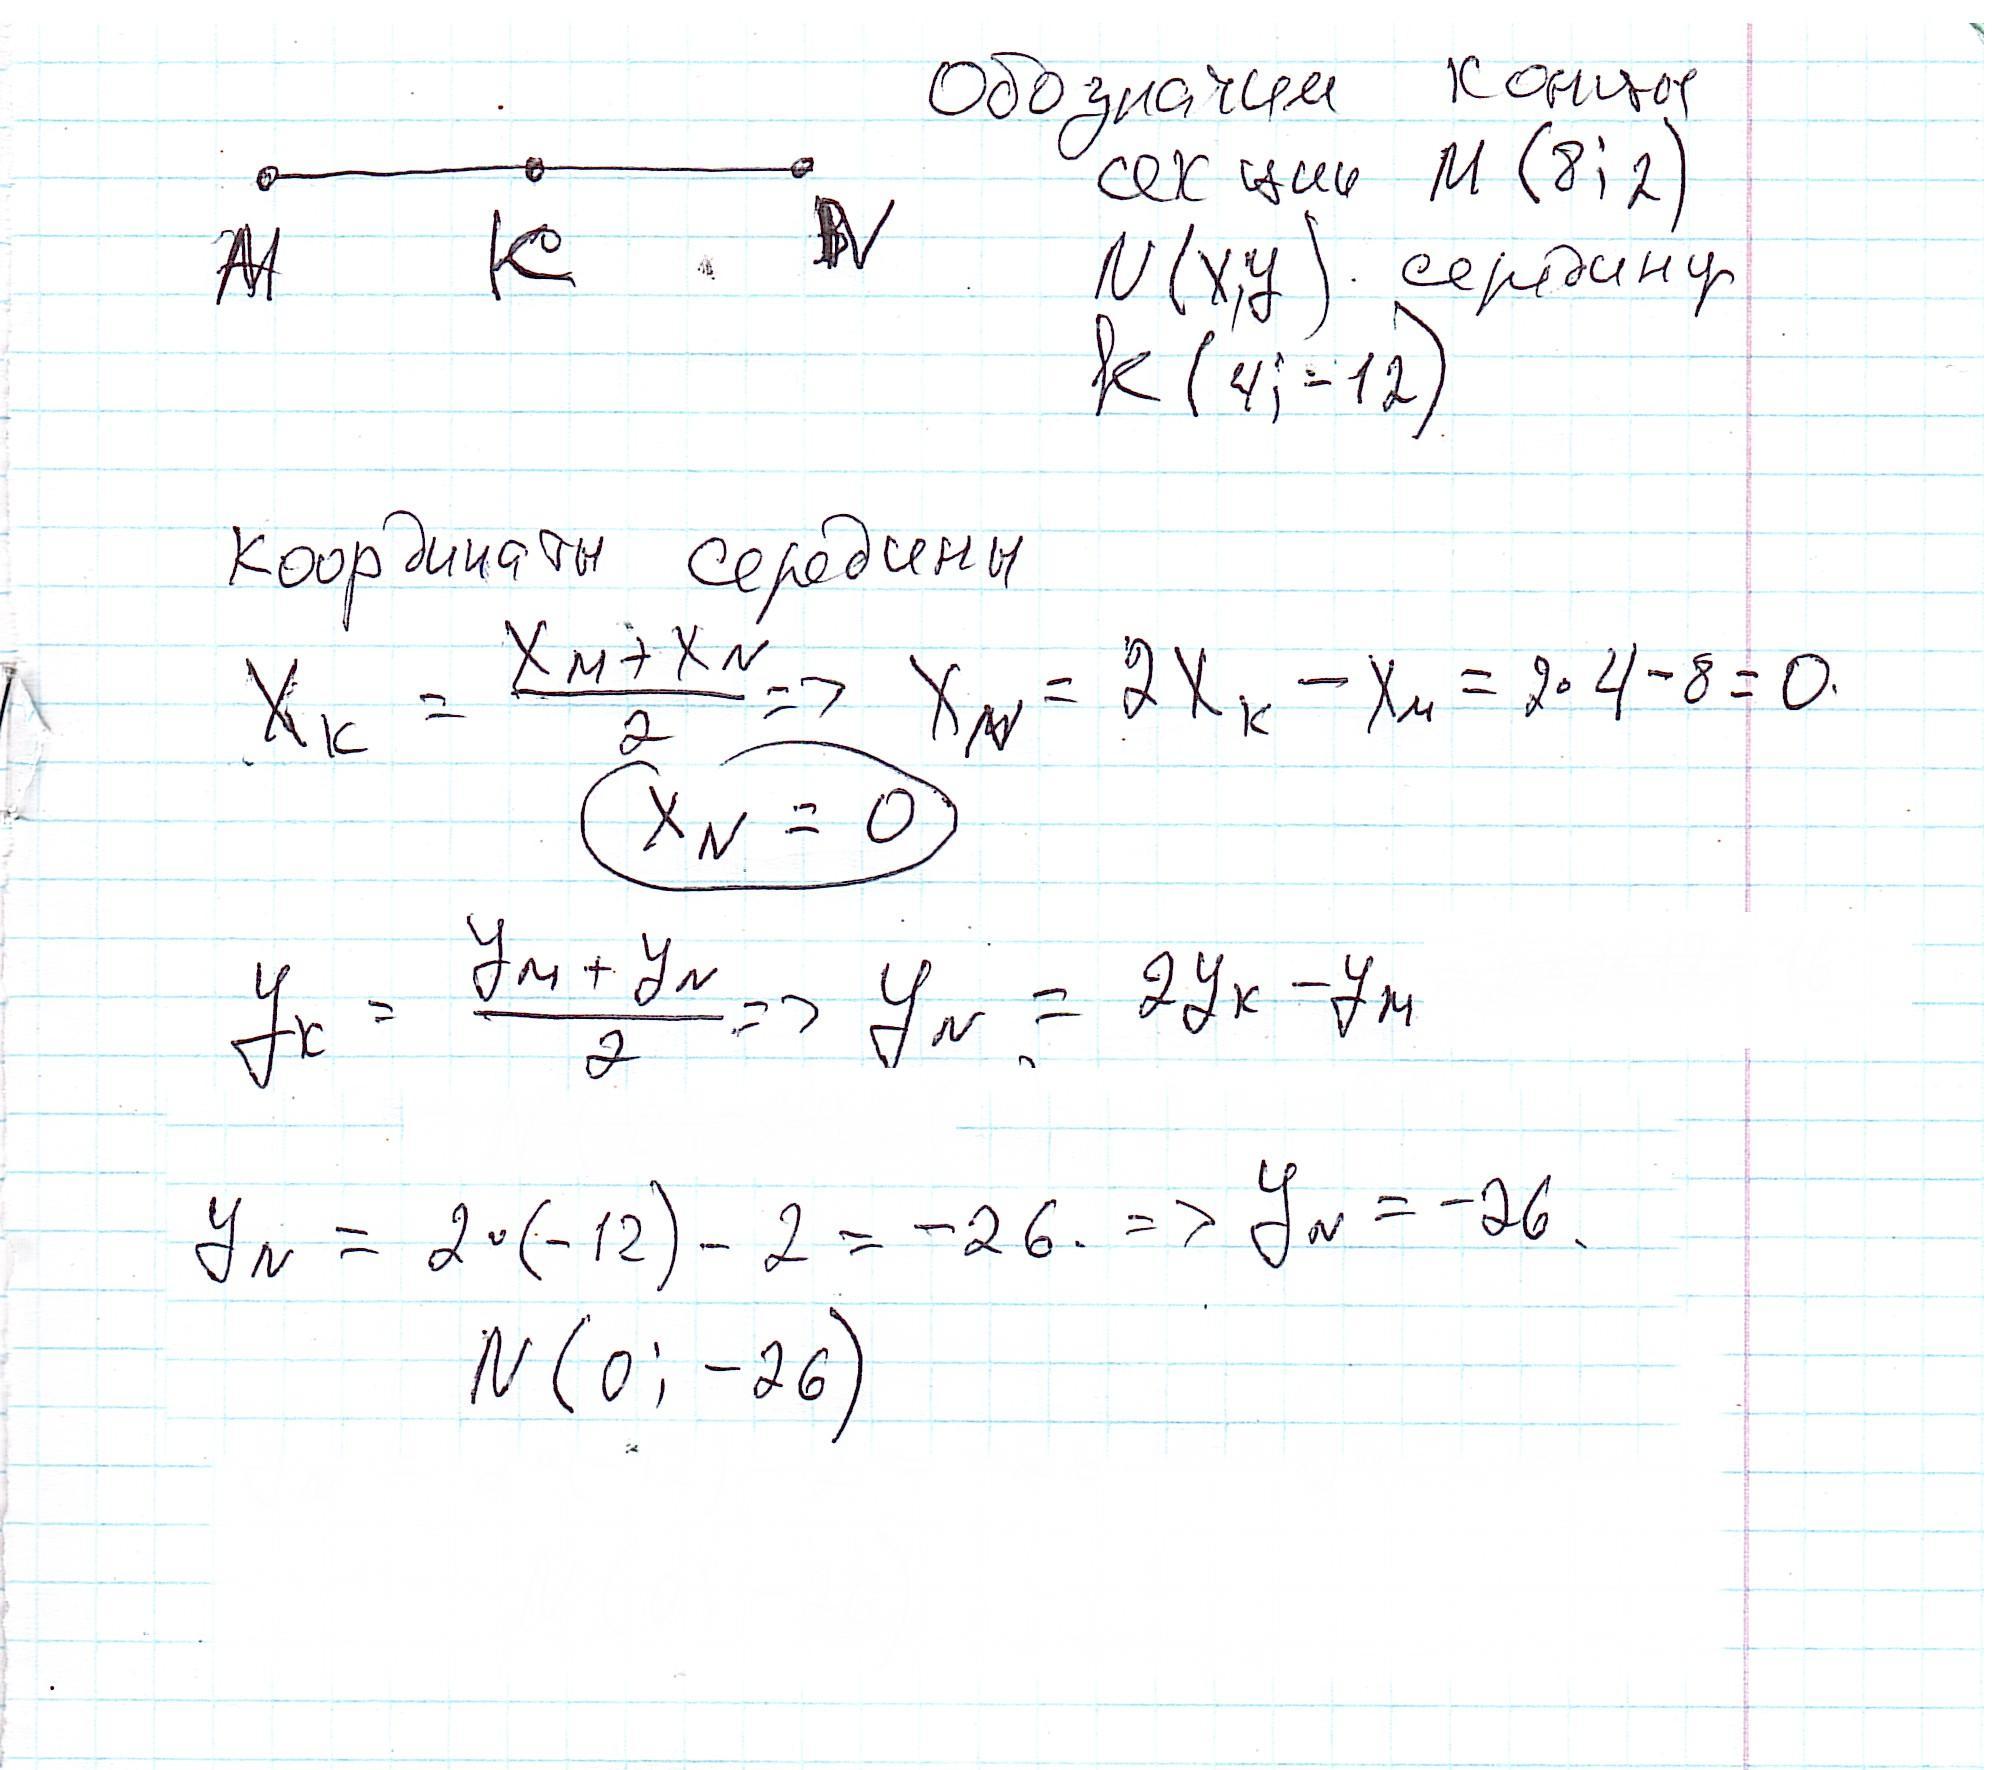 Обозначим концы
секции M (8; 2)
M K N
N (x; y). середину
K (4; -12)
Координаты середины
X_K = (X_M + X_N)/2 => X_N = 2X_K - X_M = 2·4 - 8 = 0.
X_N = 0
y_K = (y_M + y_N)/2 => y_N = 2y_K - y_M
y_N = 2·(-12) - 2 = -26. => y_N = -26.
N (0; -26)